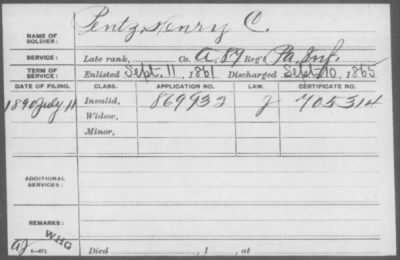 NAME OF SOLDIER: Pentz, Henry C.
SERVICE: Late rank, Co. A, 87 Reg't Pa. Inf.
TERM OF SERVICE: Enlisted Sept. 11, 1861 Discharged Sept 10, 1865
DATE OF FILING. CLASS. APPLICATION NO. LAW. CERTIFICATE NO.
1890 July 11 Invalid, 869932 J 705314
Widow,
Minor,
ADDITIONAL SERVICES:
REMARKS: WHG
Died , 1 , at